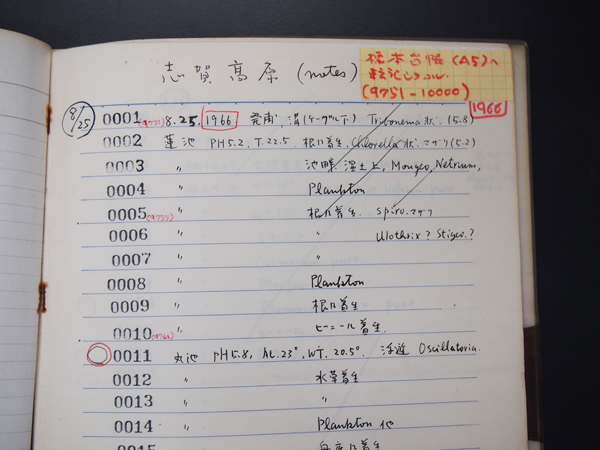 志賀高原 (notes)
標本台帳 (A5)へ
転記しつつ
(9751-10000)
1966
8/25
0001 (9751) 8.25, 1966 発甫, 溝(ケーブル下) Tribonema状. (5.8)
0002 蓮池 PH5.2, T.22.5 根に着生, Chlorella状. マガリ (5.2)
0003 〃 池畔, 湿土上, Mougeo, Netrium,
0004 〃 Plankton
0005 (9755) 〃 根に着生. Spiro.
0006 〃 〃 Ulothrix? Stigeo.?
0007 〃 〃
0008 〃 Plankton
0009 〃 根に着生
0010 (9760) 〃 ビニール着生
0011 丸池 PH5.8, At. 23°, WT. 20.5°. 浮遊 Oscillatoria.
0012 〃 水草着生
0013 〃 〃
0014 〃 Plankton 他
0015